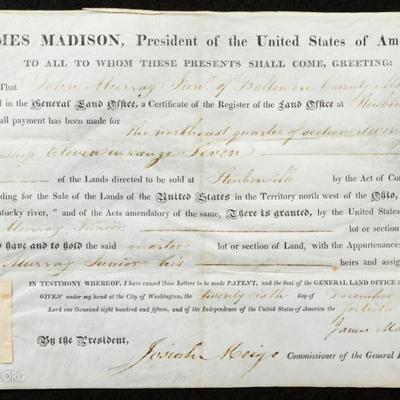 MES MADISON, President of the United States of Am
TO ALL TO WHOM THESE PRESENTS SHALL COME, GREETING:
That John Murray Junr of Baltimore County Ma
d in the General Land Office, a Certificate of the Register of the Land Office at Steuben
ll payment has been made for the northeast quarter of section Seven
ship Eleven in range Seven
of the Lands directed to be sold at Steubenville by the Act of Con
ding for the Sale of the Lands of the United States in the Territory north west of the Ohio,
tucky river, " and of the Acts amendatory of the same, There is granted, by the United States
Murray Junior lot or section
o have and to hold the said quarter lot or section of Land, with the Appurtenances
Murray Junior his heirs and assign
IN TESTIMONY WHEREOF, I have caused these Letters to be made PATENT, and the Seal of the GENERAL LAND OFFICE
GIVEN under my hand at the City of Washington, the twenty sixth day of December
Lord one thousand eight hundred and fifteen, and of the Independence of the United States of America the fortieth
James Ma
By the President,
Josiah Meigs Commissioner of the General L
.ORG